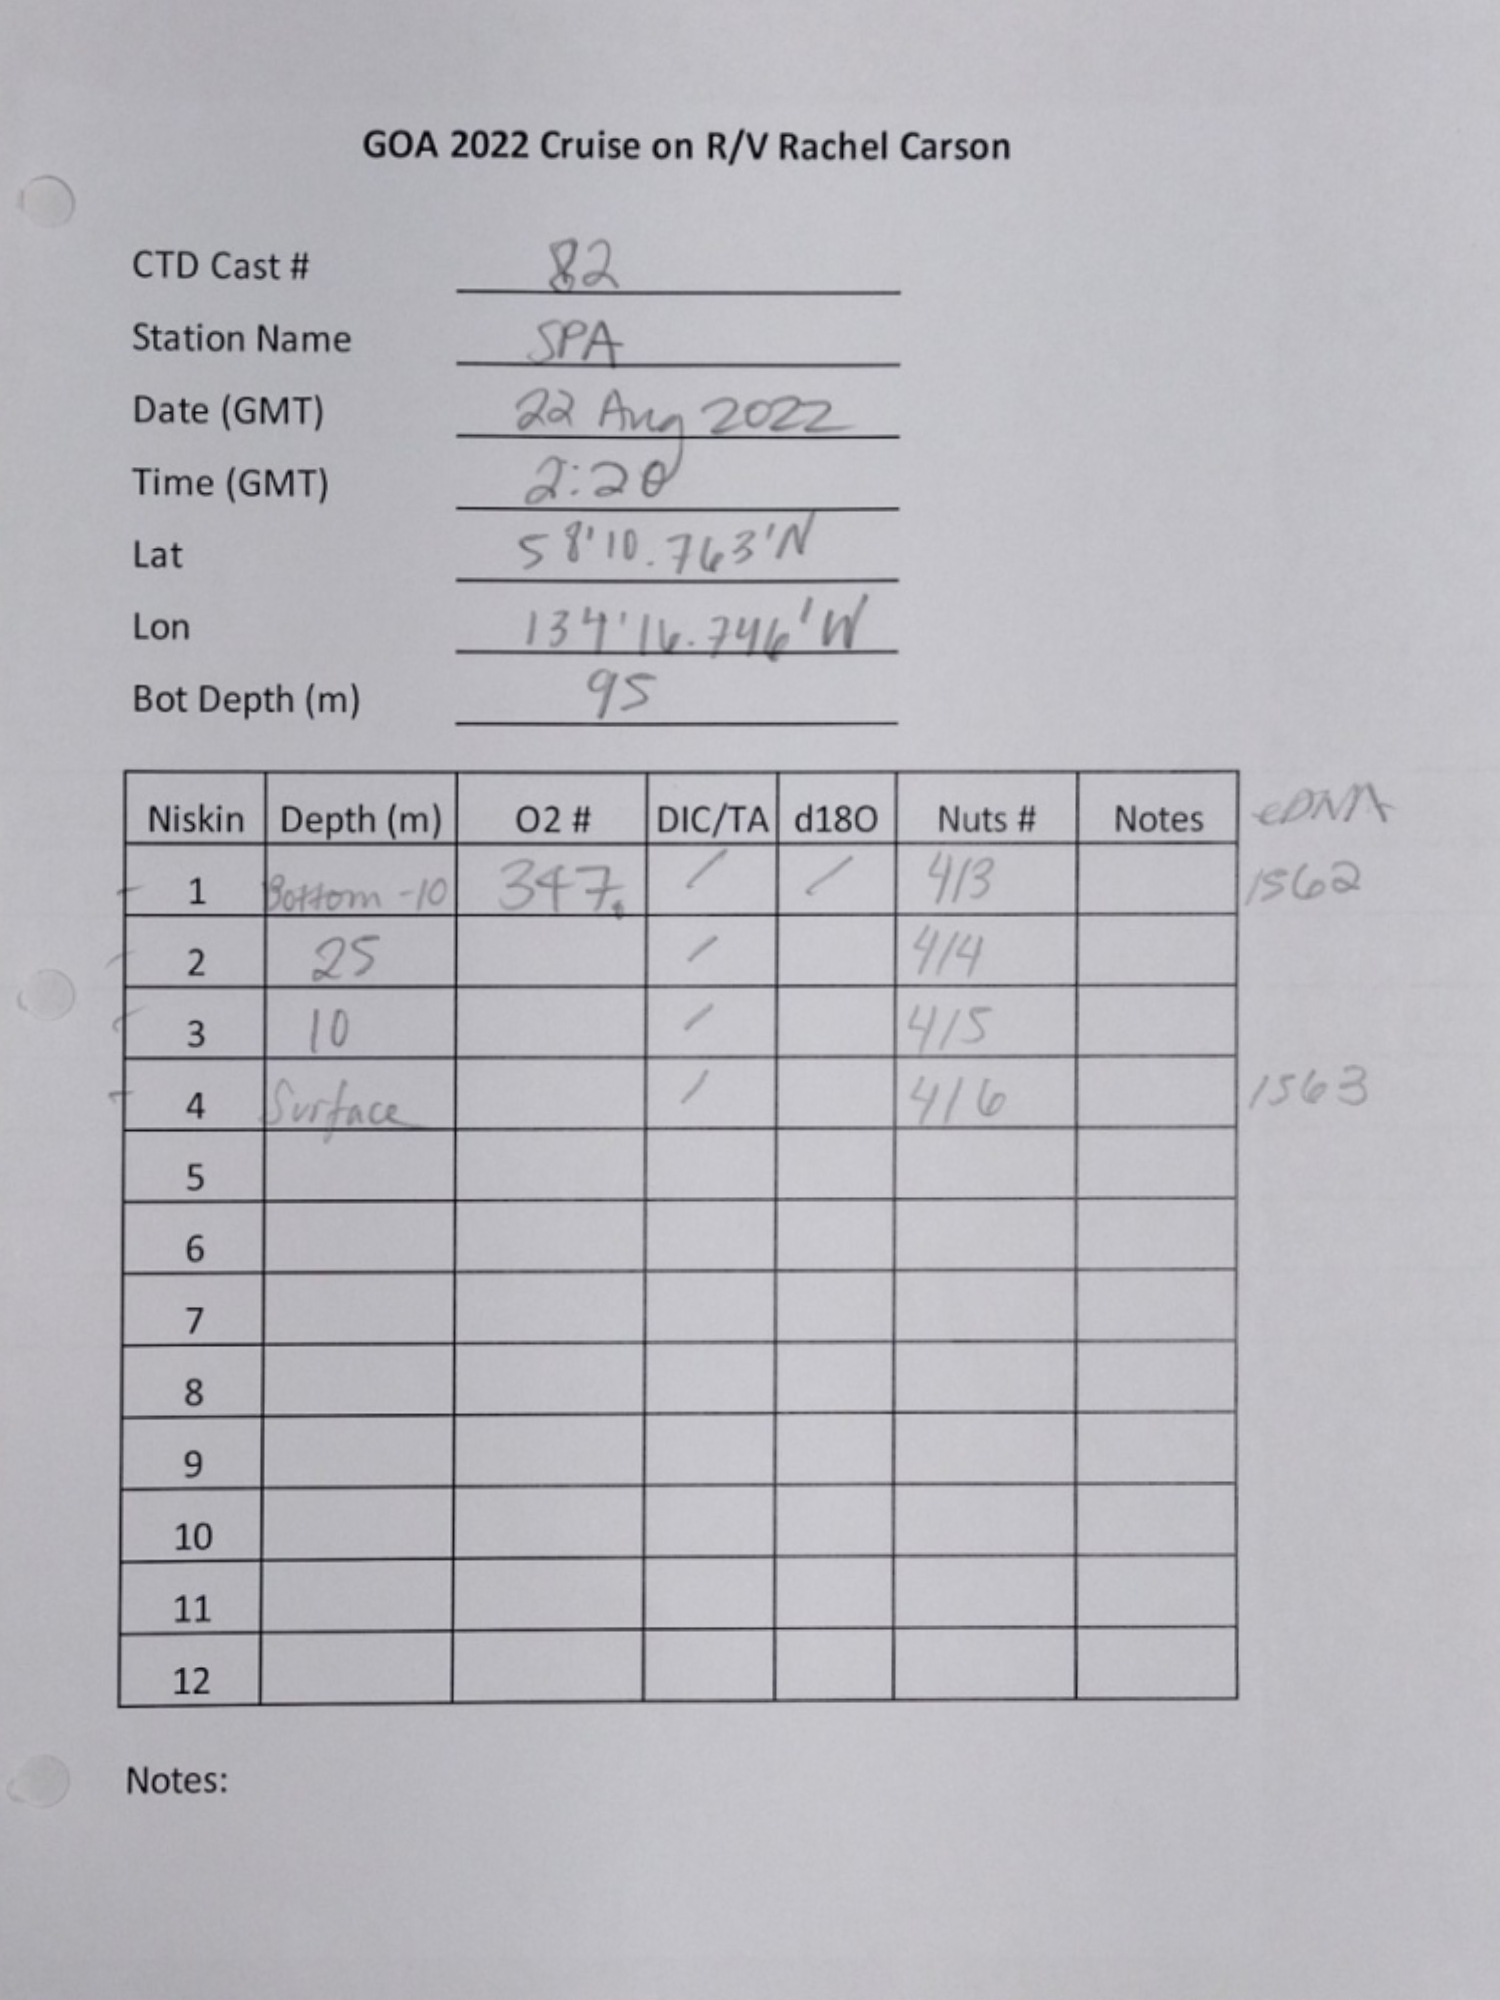 GOA 2022 Cruise on R/V Rachel Carson
CTD Cast # 82
Station Name SPA
Date (GMT) 22 Aug 2022
Time (GMT) 2:20
Lat 58'10.763'N
Lon 134'16.746'W
Bot Depth (m) 95
Niskin Depth (m) O2 # DIC/TA d18O Nuts # Notes eDNA
1 Bottom -10 347. / / 413 1562
2 25 / 414
3 10 / 415
4 Surface / 416 1563
5
6
7
8
9
10
11
12
Notes: